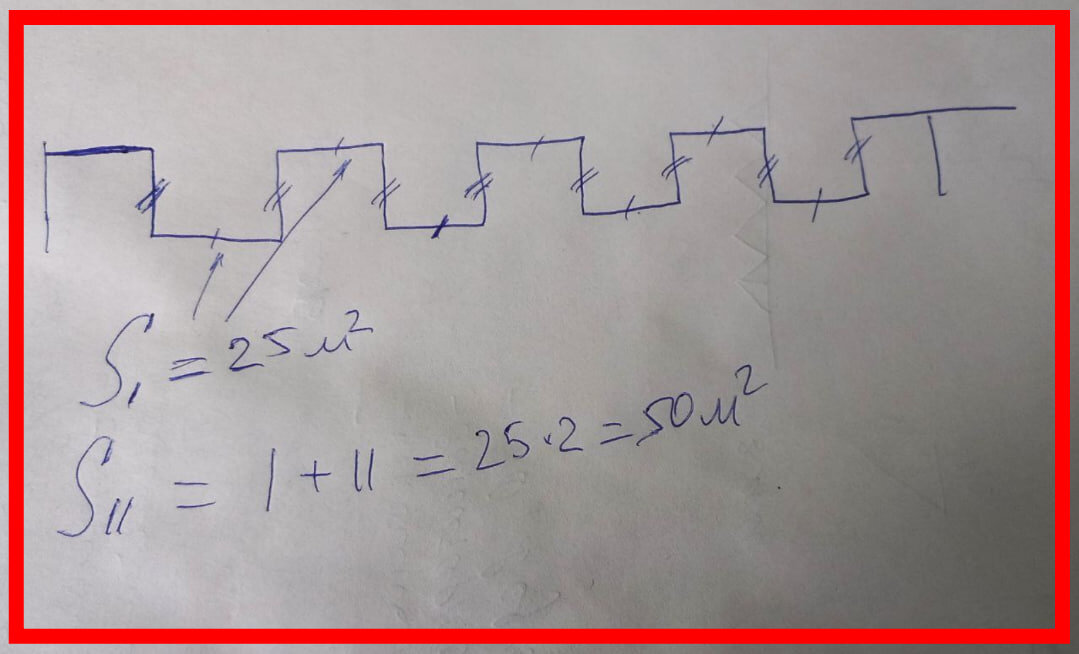 S₁ = 25 м²
S₁₁ = 1 + 11 = 25·2 = 50 м²